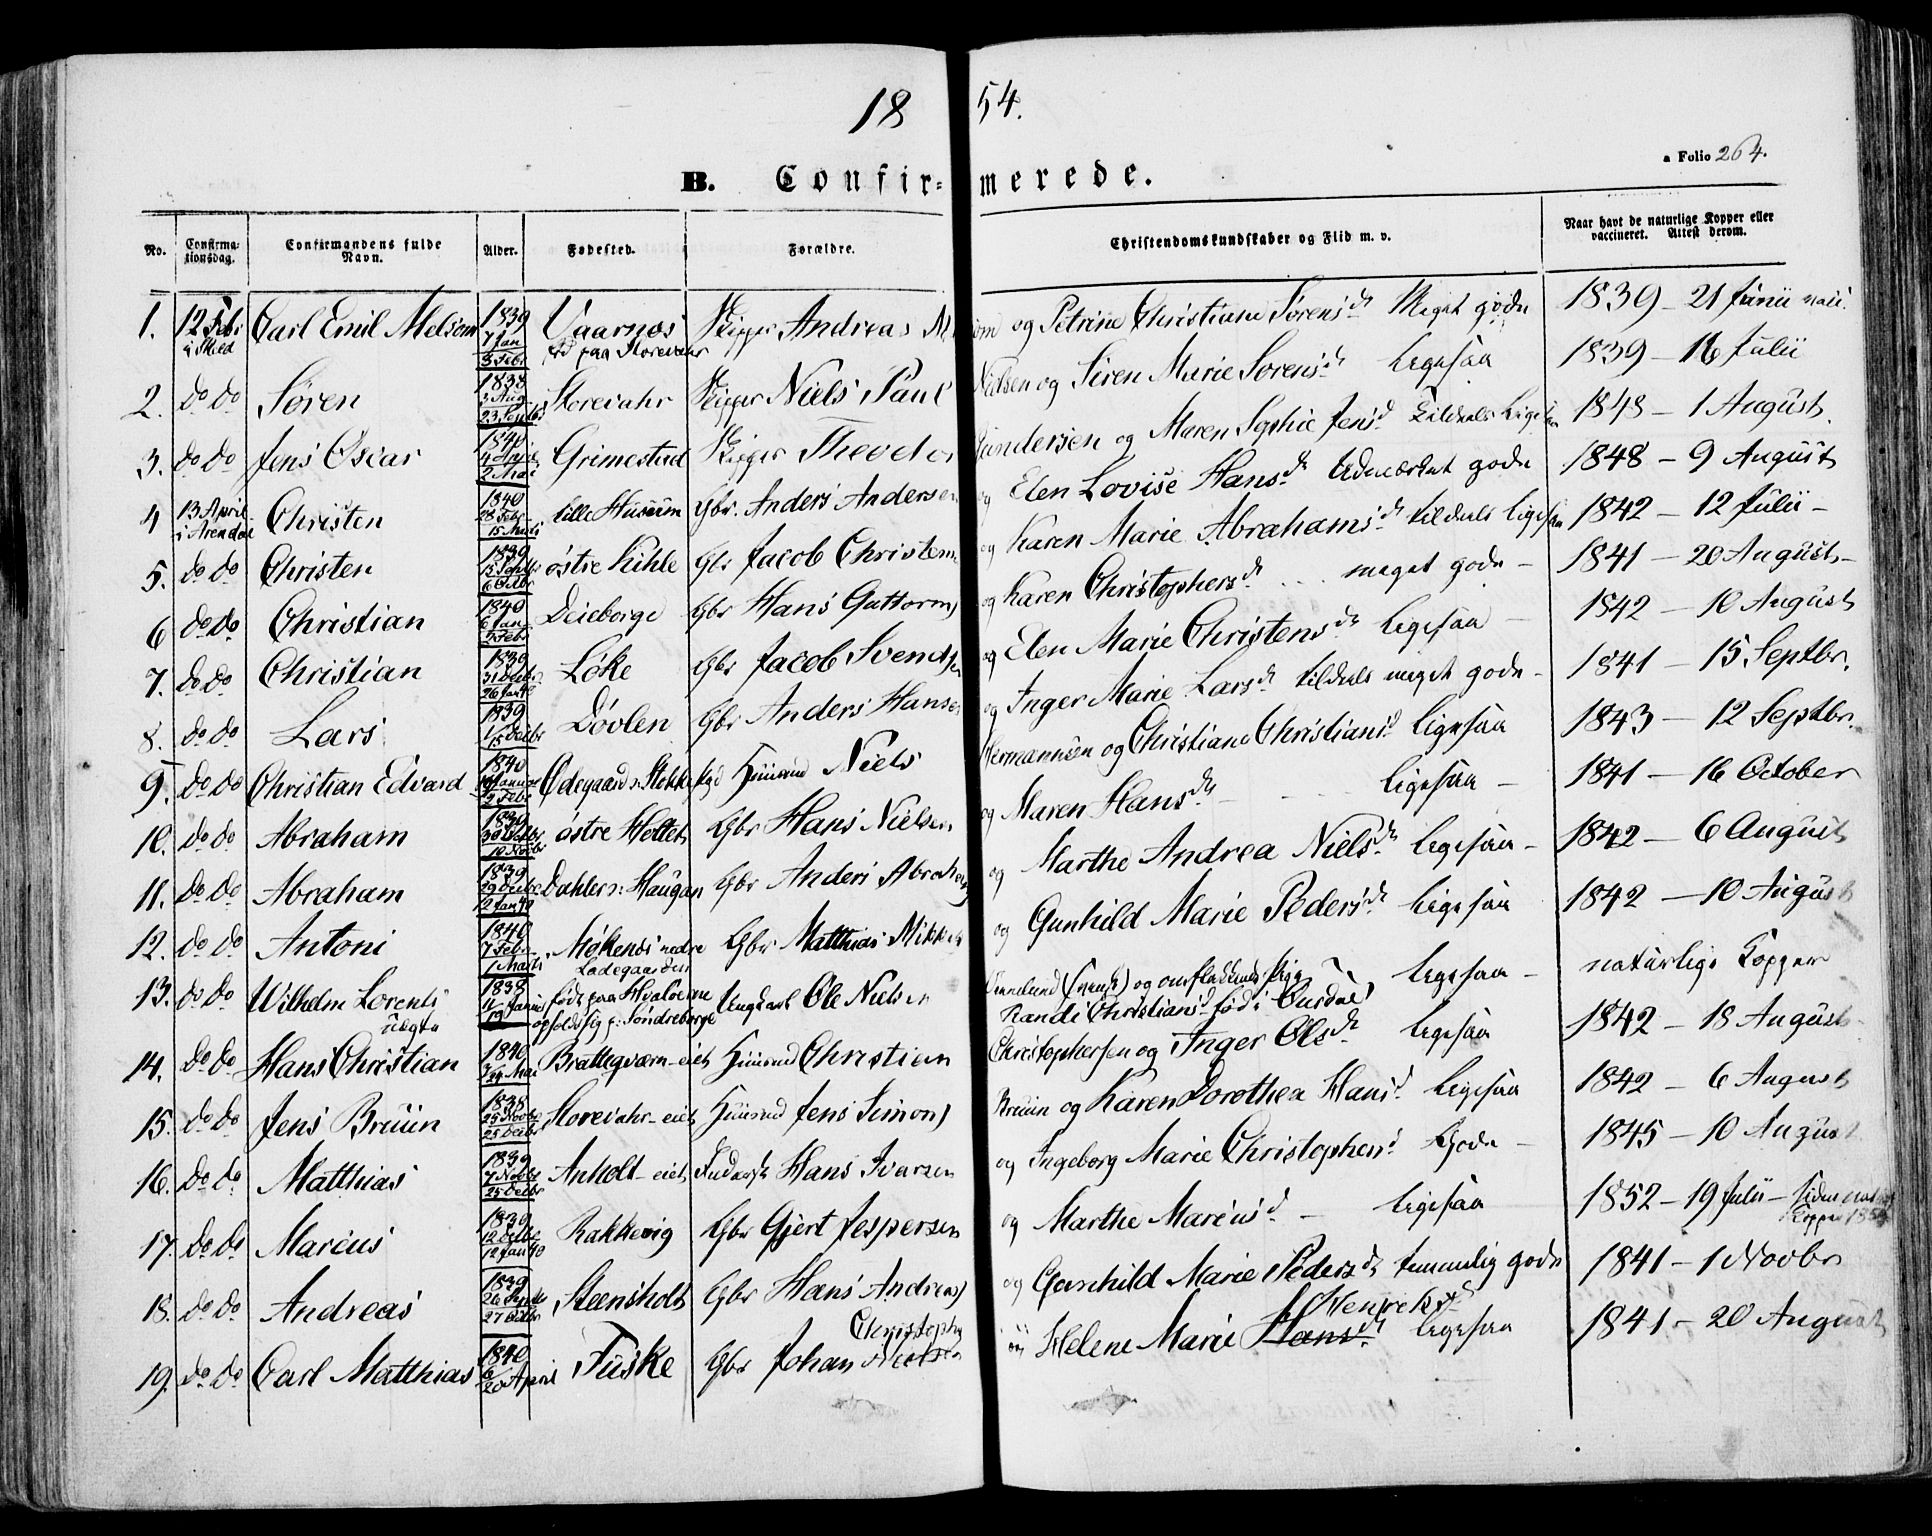 18 54.
a Folio 264.
B. Confir= merede.
No. Confirma-tionsdag. Confirmandens fulde Navn. Alder. Fødested. Forældre. Christendomskundskaber og Flid m. v. Naar havt de naturlige Kopper eller vaccineret. Attest derom.
1. 12 Febr Carl Emil Melsom 1839 7 Jan 3 Febr Vaarnæs Skipper Andreas M og Petrine Christiane Sørensdr Meget gode 1839 - 21 Junii
2. do do Søren 1838 23 Septbr Storevahr Skipper Niels Paul Nielsen og Siren Marie Sørensdr ligesaa 1839 - 16 Julii
3. do do Jens Oscar 1840 2 Mai Grimestad Skipper Theodor Gundersen og Maren Sophie Jensd Tildeels ligesaa 1848 - 1 August
4 13 April i Arendal Christen 1840 28 Febr 15 Marti lille Huseum Gbr. Anders Andersen og Elen Lovise Hansdr Udmærket gode 1848 - 9 August
5. do do Christen 1839 15 Septbr 6 Octbr østre Kihle Gbr Jacob Christens og Karen Marie Abrahamsdr tildeels ligesaa 1842 - 12 Julii -
6 do do Christian 1840 6 Jan Febr Deieborge Gbr Hans Guttorms og Karen Christophersdr meget gode - 1841 - 20 August -
7. do do Christian 1839 31 Decbr 26 Jan 40 Løke Gbr Jacob Svends og Elen Marie Christensdr ligesaa 1842 - 10 August
8. do do Lars 1839 15 Decbr Døvlen Gbr Anders Hansen og Inger Marie Larsdr tildeels meget gode - 1841 - 15 Septbr.
9. do do Christian Edvard 1840 2 Febr Ødegaard Huusmd Niels Hermannsen og Christiane Christiansd ligesaa 1843 - 12 Septbr.
10. do do Abraham 1839 10 Novbr østre Holtet Gbr Hans Nielsen og Maren Hansdr ligesaa - 1841 - 16 October
11. do do Abraham 1839 29 Decbr 12 Jan 40 Haugan Gbr Anders Abrahams og Marthe Andrea Nielsdr ligesaa - 1842 - 6 August
12. do do Antoni 1840 7 Febr 1 Marti Møkenæs nedre Ladegaarden Gbr Matthias Mikk og Gunhild Marie Pedersdr ligesaa 1842 - 10 August
13. do do Wilhelm Lorents uægte 1838 19 født paa Hvaløerne opholdt sig p. Søndreborge Ungkarl Ole Nielsen og Randi Christiansd ligesaa - naturlige Kopper
14. do do Hans Christian 1840 24 Mai Brattegværn-eiet Huusmd Christian Christophersen og Inger Olsdr ligesaa 1842 - 18 August
15. do do Jens Bruun 1838 25 Novbr 25 Decbr Storevahr-eiet Huusmd Jens Simons Bruun og Karen Dorothea Hansd ligesaa 1842 - 6 August
16. do do Matthias 1839 7 Novbr 25 Decbr Anholt-eiet Hans Ivarsen og Ingeborg Marie Christophersd Gode - 1845 - 10 August
17. do do Marcus 1839 12 Decbr 12 Jan 40 Rakkevig Gbr Gjert Jespersen og Marthe Marcusd - ligesaa 1852 - 19 Julii - siden Kopper
18. do do Andreas 1839 26 Septbr 27 Octbr Steensholt Gbr Hans Andreas og Gunhild Marie Pedersdr temmelig gode 1841 - 1 Novbr
19. do do Carl Matthias 1840 6 20 April Fuske Gbr Johan Christoph Helene Marie Hansdr Henriksdr ligesaa 1841 - 20 August